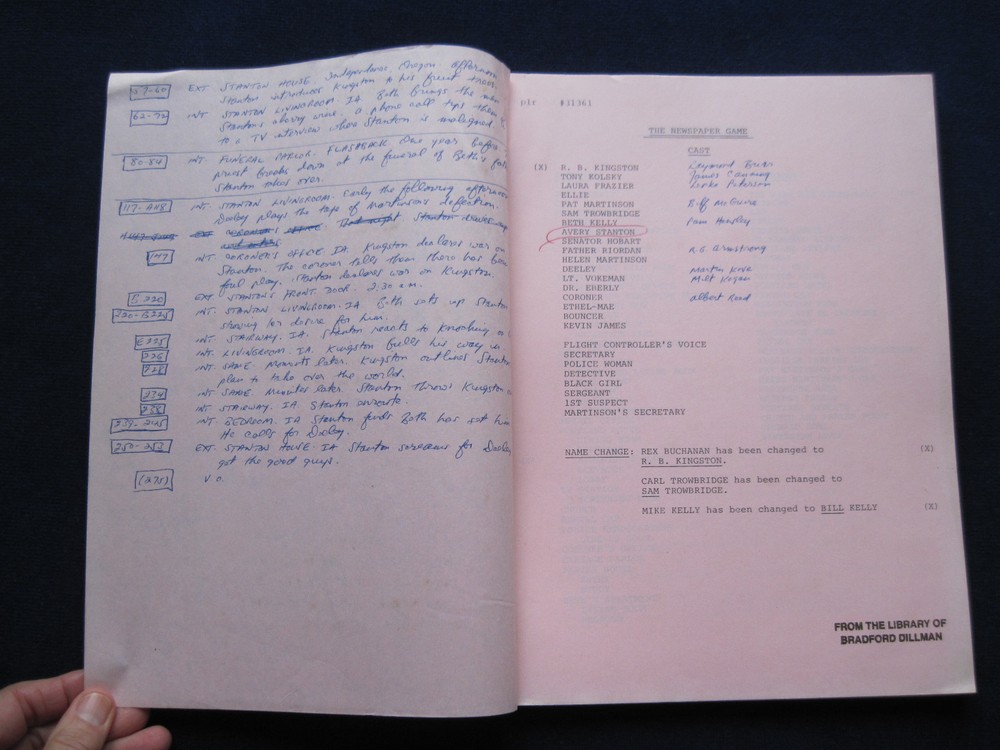 57-60 EXT STANTON HOUSE Independence, Oregon afternoon
Stanton introduces Kingston to his fruit trees.
62-72 INT STANTON LIVINGROOM. IA. Beth brings the men
Stanton's cherry wine. A phone call tips them
to a TV interview where Stanton is maligned.
80-84 INT. FUNERAL PARLOR. FLASHBACK One year before
priest breaks down at the funeral of Beth's
Stanton takes over.
117-A118 INT. STANTON LIVINGROOM. Early the following afternoon
Deeley plays the tape of Martinson's defection.
147 INT. CORONER'S OFFICE IA. Kingston declares war on
Stanton. The coroner tells them there has been
foul play. Stanton declares war on Kingston.
E220 EXT. STANTON'S FRONT DOOR. 2:30 a.m.
INT. STANTON LIVINGROOM. IA. Beth sets up Stanton
showing her desire for him.
E225 INT. STAIRWAY. IA. Stanton reacts to knocking
226 INT. LIVINGROOM. IA. Kingston bulls his way in
INT. SAME. Moments later. Kingston outlines Stanton
plan to take over the world.
234 INT. SAME. Minutes later. Stanton throws Kingston
238 INT. STAIRWAY. IA. Stanton
239-245 INT. BEDROOM. IA Stanton finds Beth has set him
He calls for Deeley.
250-253 EXT. STANTON HOUSE. IA Stanton screams for Deeley
get the good guys.
(275) V.O.
#31361
THE NEWSPAPER GAME
CAST
(X) R. B. KINGSTON Raymond Burr
TONY KOLSKY James Canning
LAURA FRAZIER Lenka Peterson
ELLIE
PAT MARTINSON Biff McGuire
SAM TROWBRIDGE
BETH KELLY Pam Hensley
AVERY STANTON
SENATOR HOBART
FATHER RIORDAN RG Armstrong
HELEN MARTINSON
DEELEY Martin Kove
LT. VOKEMAN Milt Kogan
DR. EBERLY
CORONER Albert Reed
ETHEL-MAE
BOUNCER
KEVIN JAMES
FLIGHT CONTROLLER'S VOICE
SECRETARY
POLICE WOMAN
DETECTIVE
BLACK GIRL
SERGEANT
1ST SUSPECT
MARTINSON'S SECRETARY
NAME CHANGE: REX BUCHANAN has been changed to (X)
R. B. KINGSTON.
CARL TROWBRIDGE has been changed to
SAM TROWBRIDGE.
MIKE KELLY has been changed to BILL KELLY (X)
FROM THE LIBRARY OF
BRADFORD DILLMAN